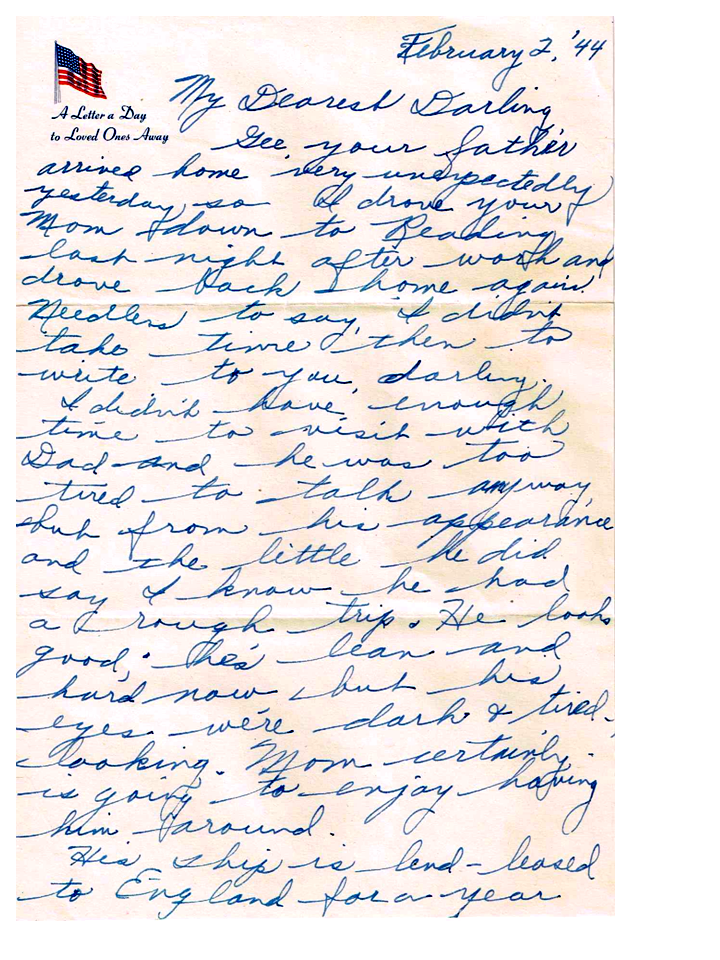 February 2, '44
A Letter a Day
to Loved Ones Away
My Dearest Darling,
Gee, your father
arrived home very unexpectedly
yesterday, so I drove your
Mom down to Reading
last night after work and
drove back home again.
Needless to say, I didn't
take time then to
write to you, darling.
I didn't have enough
time to visit with
Dad and he was too
tired to talk anyway,
but from his appearance
and the little he did
say I know he had
a rough trip. He looks
good; he's lean and
hard now, but his
eyes were dark & tired-
looking. Mom certainly
is going to enjoy having
him around.
His ship is lend-leased
to England for a year